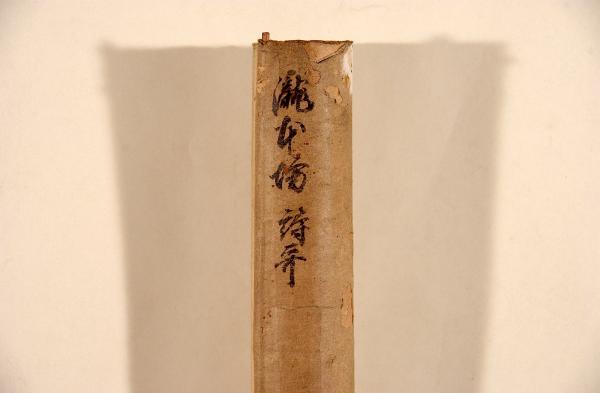 瀧本坊 詩哥